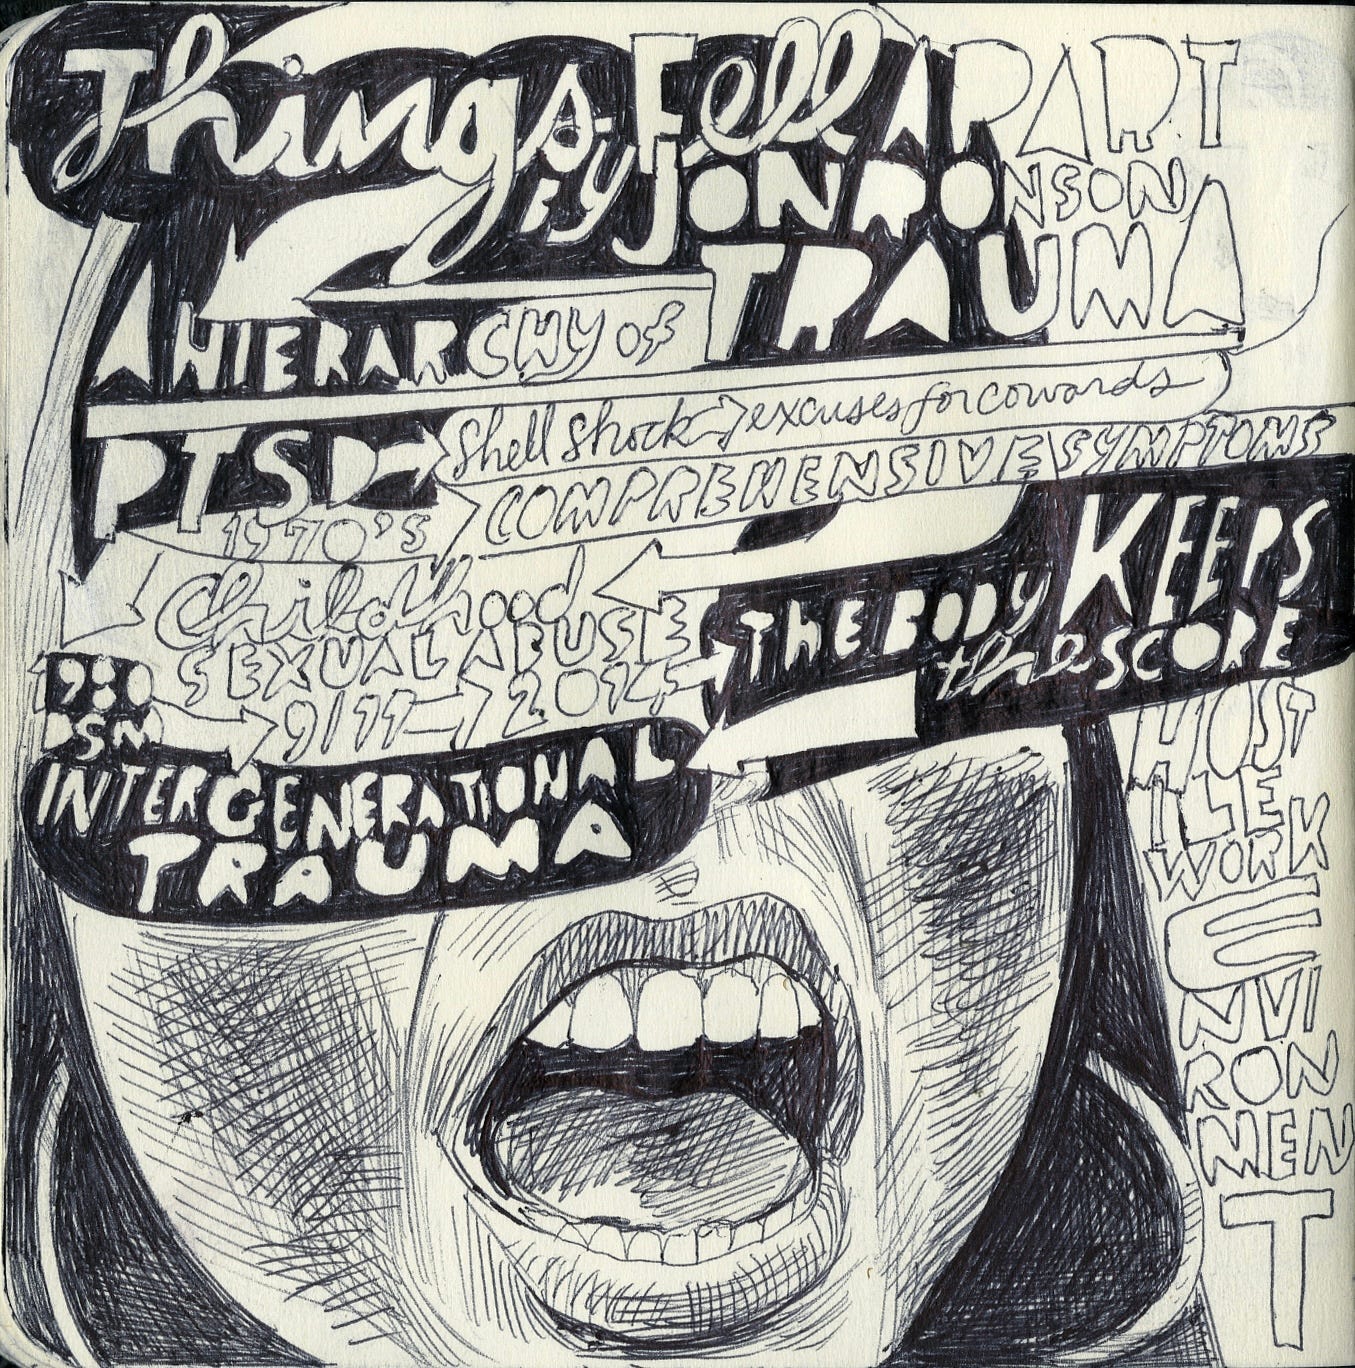 Things Fell APART
BY JON RONSON
A HIERARCHY of TRAUMA
PTSD Shell Shock excuses for cowards
1970's COMPREHENSIVE SYMPTOMS
Childhood
SEXUAL ABUSE
THE BODY KEEPS
the SCORE
980
DSM 9/11 2014
INTERGENERATIONAL
TRAUMA
HOST
ILE
WORK
E
NVI
RON
MEN
T